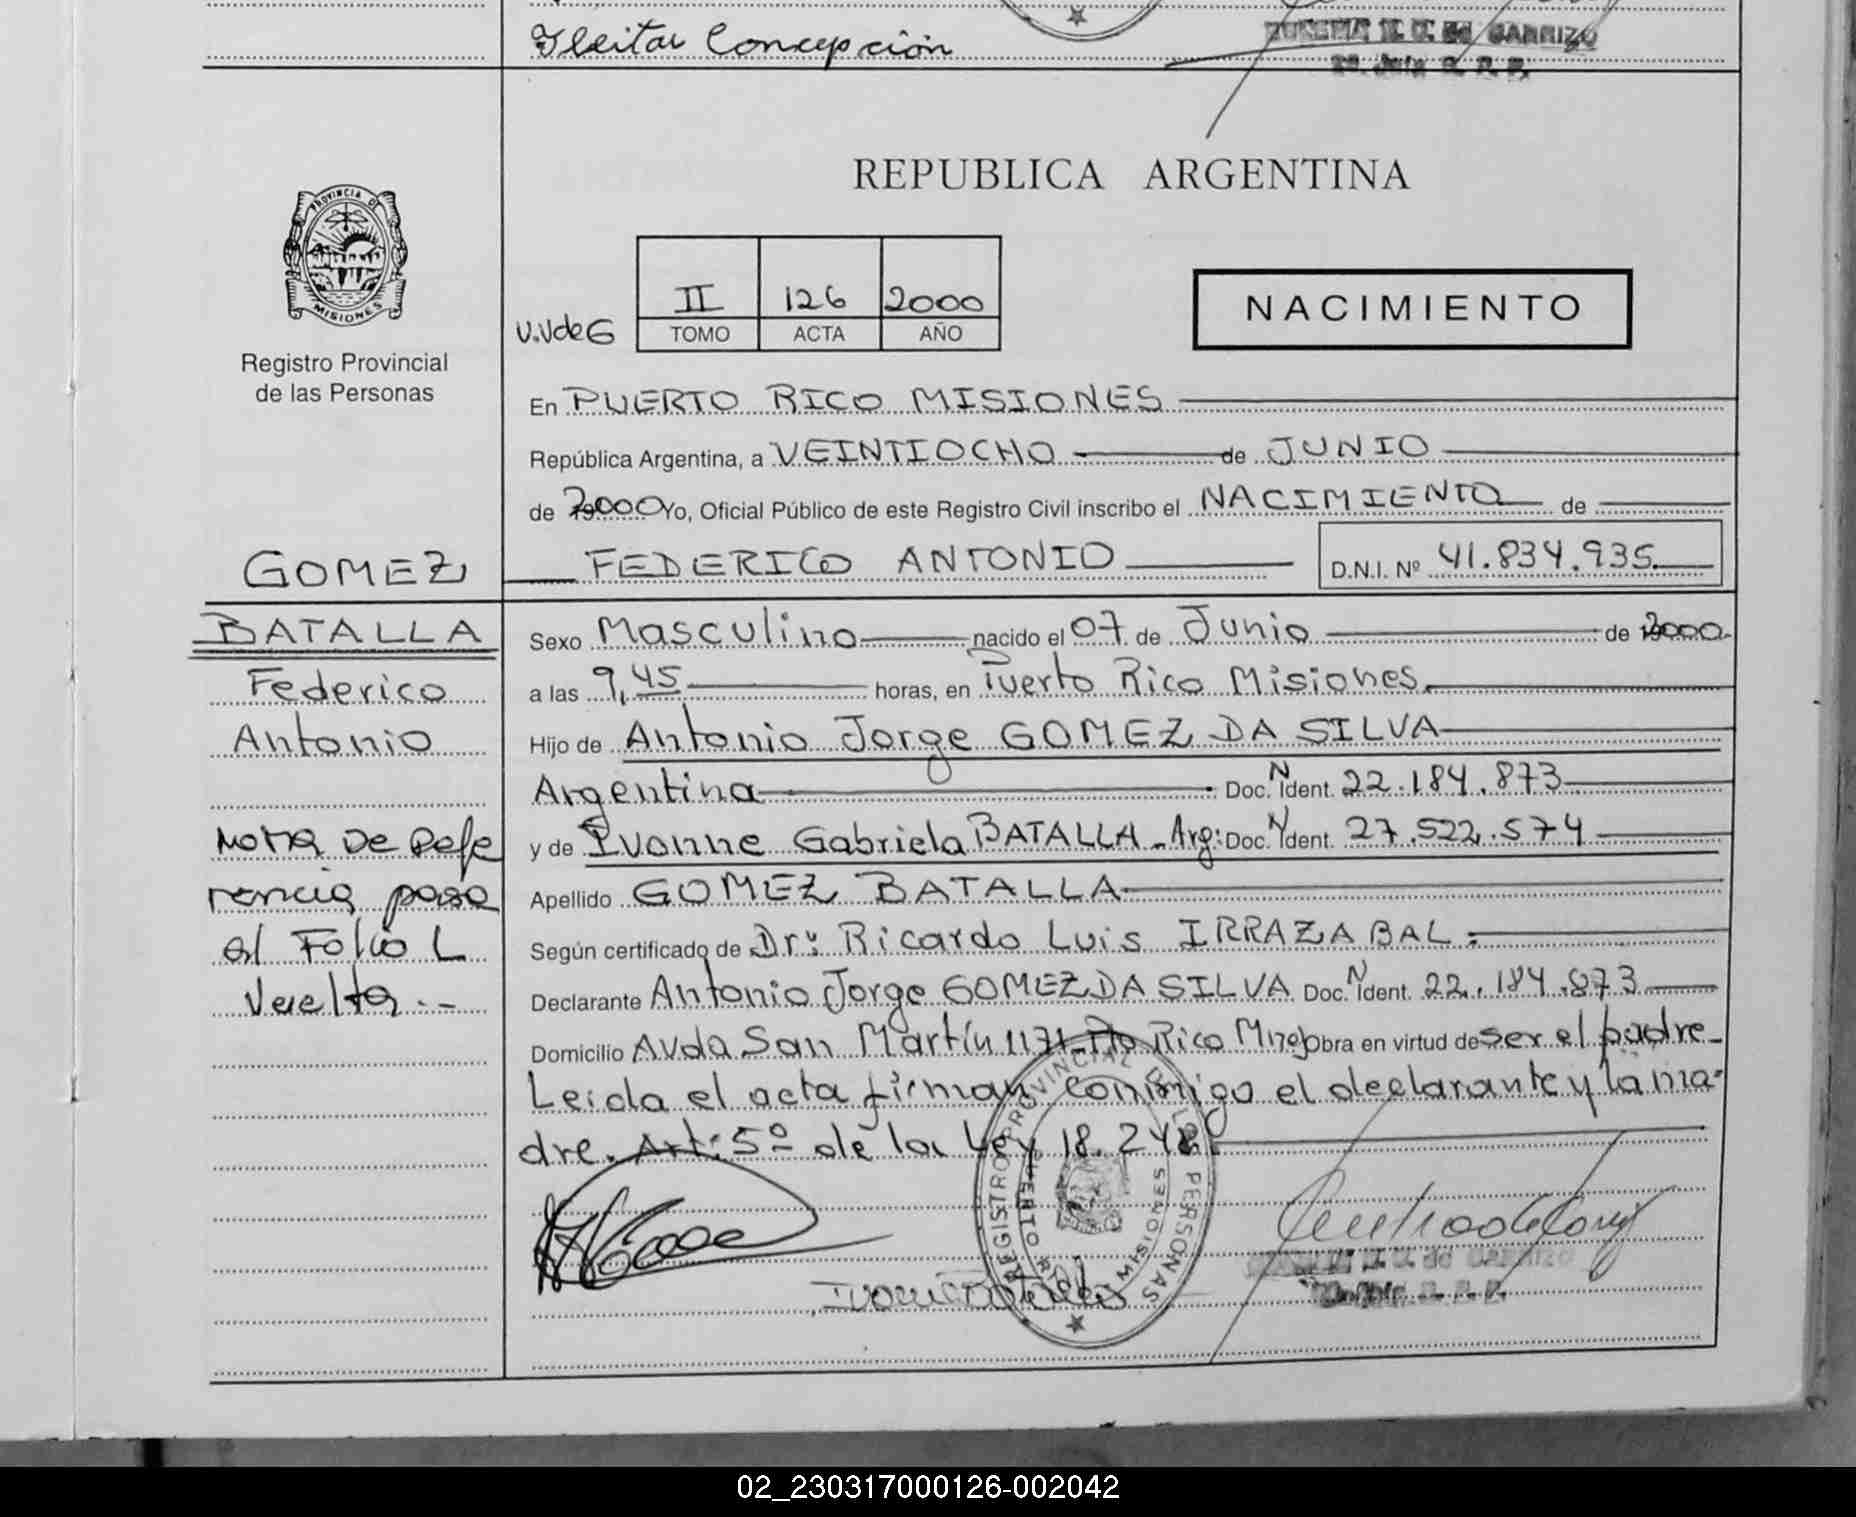 Fleitar Concepción
DE CARRIZO
REPUBLICA ARGENTINA
PROVINCIA DE
MISIONES
Registro Provincial
de las Personas
II 126 2000
V.VdeG TOMO ACTA AÑO
NACIMIENTO
En PUERTO RICO MISIONES
República Argentina, a VEINTIOCHO de JUNIO
de 2000 Yo, Oficial Público de este Registro Civil inscribo el NACIMIENTO de
GOMEZ FEDERICO ANTONIO D.N.I. Nº 41.834.935
BATALLA
Federico
Antonio
Nota De Refe
rencia pasa
al Folio L
Vuelta.-
Sexo Masculino nacido el 07 de Junio de 2000
a las 9,45 horas, en Puerto Rico Misiones.
Hijo de Antonio Jorge GOMEZ DA SILVA
Argentina Doc. N Ident. 22.184.873
y de Ivonne Gabriela BATALLA - Arg: Doc. N Ident. 27.522.574
Apellido GOMEZ BATALLA
Según certificado de Dr: Ricardo Luis IRRAZABAL.
Declarante Antonio Jorge GOMEZ DA SILVA Doc. N Ident. 22.184.873
Domicilio Avda San Martín 1171-Pto Rico Mnes Obra en virtud de ser el padre-
Leida el acta firman conmigo el declarante y la ma-
dre. Art: 5º de la Ley 18.248.
REGISTRO PROVINCIAL DE LAS PERSONAS
PUERTO RICO MISIONES
de CARRIZO
02_230317000126-002042